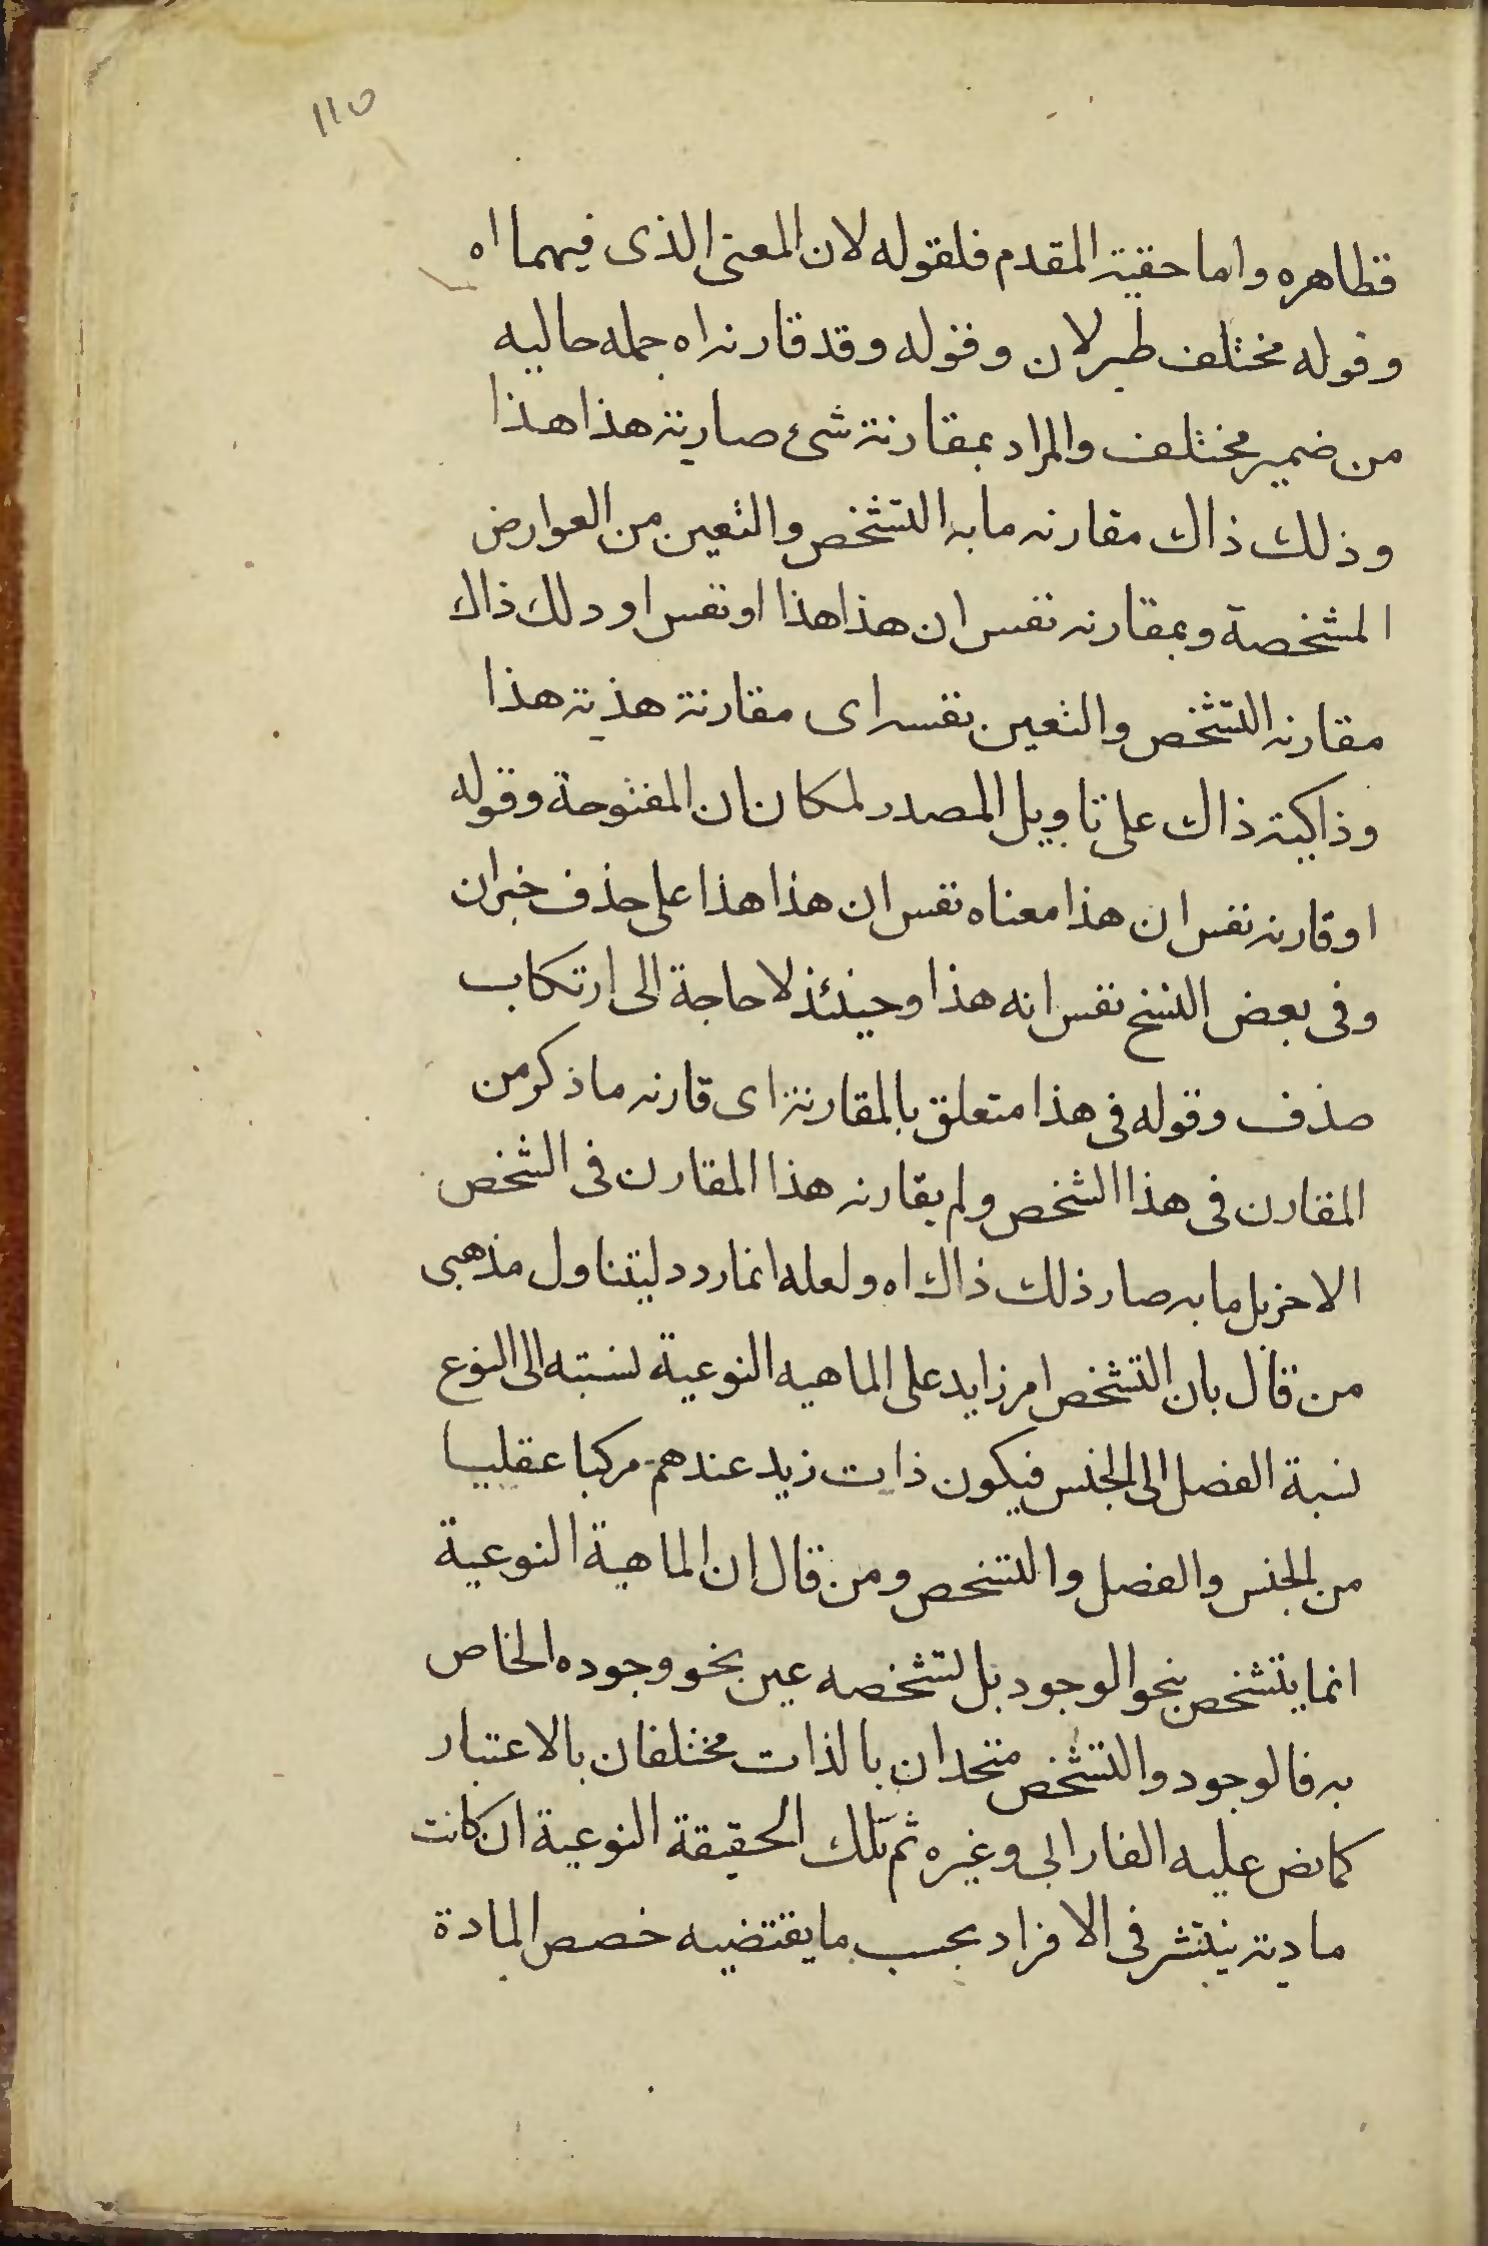 ١١٥
فظاهره واما حقية المقدم فلقوله لان المعنى الذى فيهما اه
وقوله مختلف خبر لان وقوله وقد قارنه اه جمله حاليه
من ضمير مختلف والمراد بمقارنة شئ صار به هذا هذا
وذلك ذاك مقارنه ما به التشخص والتعين من العوارض
المشخصة وبمقارنه نفس ان هذا هذا او نفس او دلك ذاك
مقارنه التشخص والتعين نفسه اى مقارنة هذية هذا
وذاكية ذاك على تاويل المصدر لمكان ان المفتوحة وقوله
او قارنه نفس ان هذا معناه نفس ان هذا هذا على حذف خبر ان
وفى بعض النسخ نفس انه هذا وحينئذ لا حاجة الى ارتكاب
حذف وقوله فى هذا متعلق بالمقارنة اى قارنه ما ذكر من
المقارن فى هذا الشخص ولم يقارنه هذا المقارن فى الشخص
الاخر بل ما به صار ذلك ذاك اه ولعله انما ردد ليتناول مذهبى
من قال بان التشخص امر زايد على الماهيه النوعية نسبته الى النوع
نسبة الفصل الى الجنس فيكون ذات زيد عندهم مركبا عقليا
من الجنس والفصل والتشخص ومن قال ان الماهية النوعية
انما يتشخص بنحو الوجود بل تشخصه عين نحو وجوده الخاص
به فالوجود والتشخص متحدان بالذات مختلفان بالاعتبار
كما نص عليه الفارابى وغيره ثم تلك الحقيقة النوعية ان كانت
مادية ينتشر فى الافراد بحسب ما يقتضيه خصص المادة